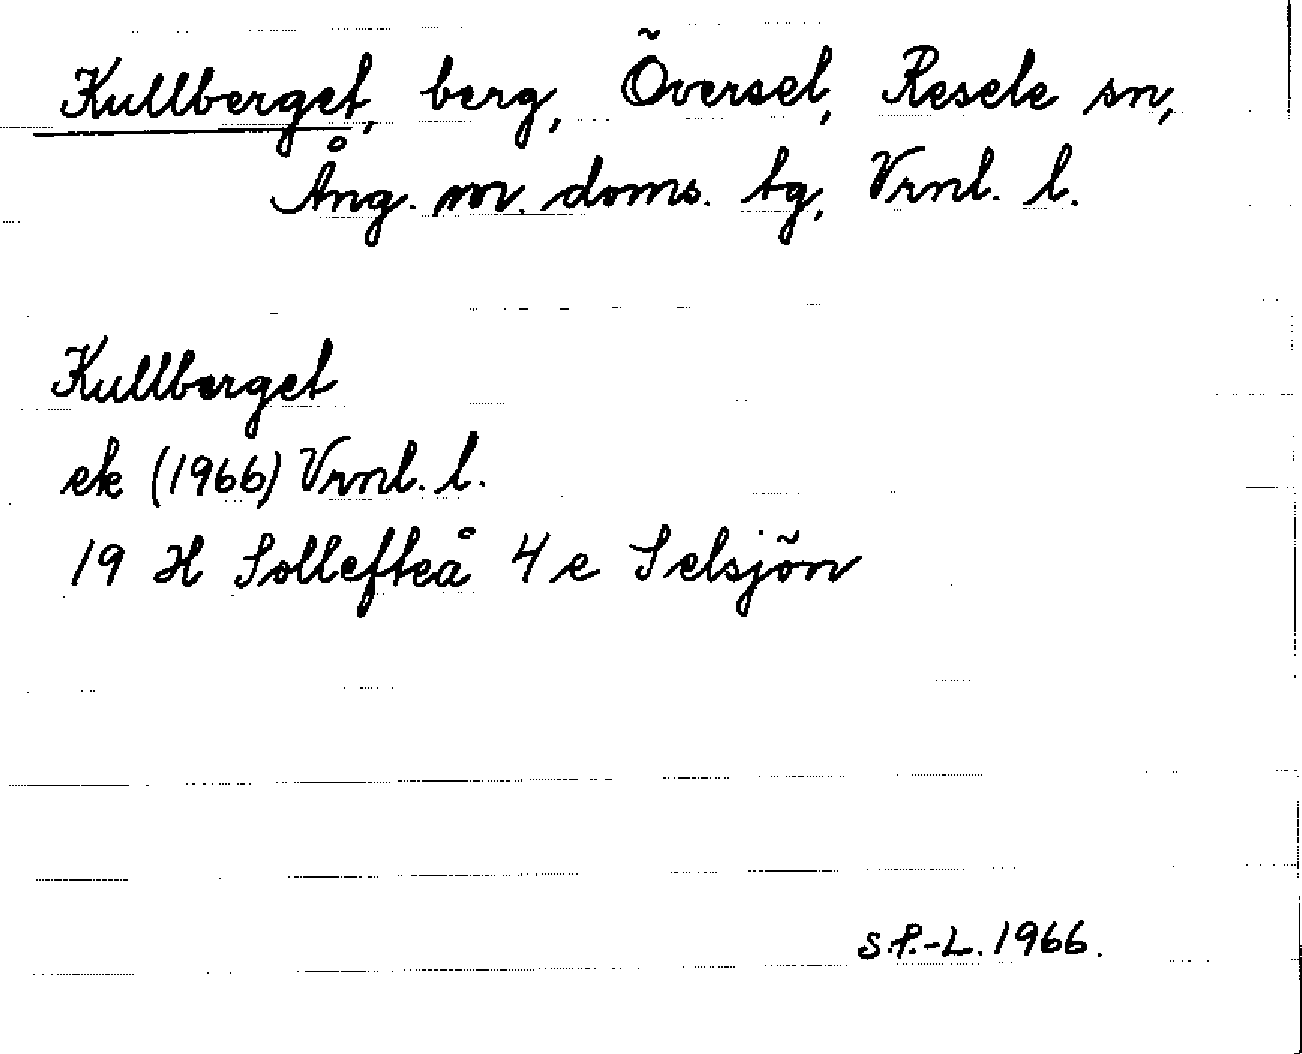 Kullberget, berg, Översel, Resele sn,
Ång. m. doms. tg, Vrnl. l.
Kullberget
ek (1966) Vrnl. l.
19 H Sollefteå 4 e Selsjön
S.P.-L. 1966.